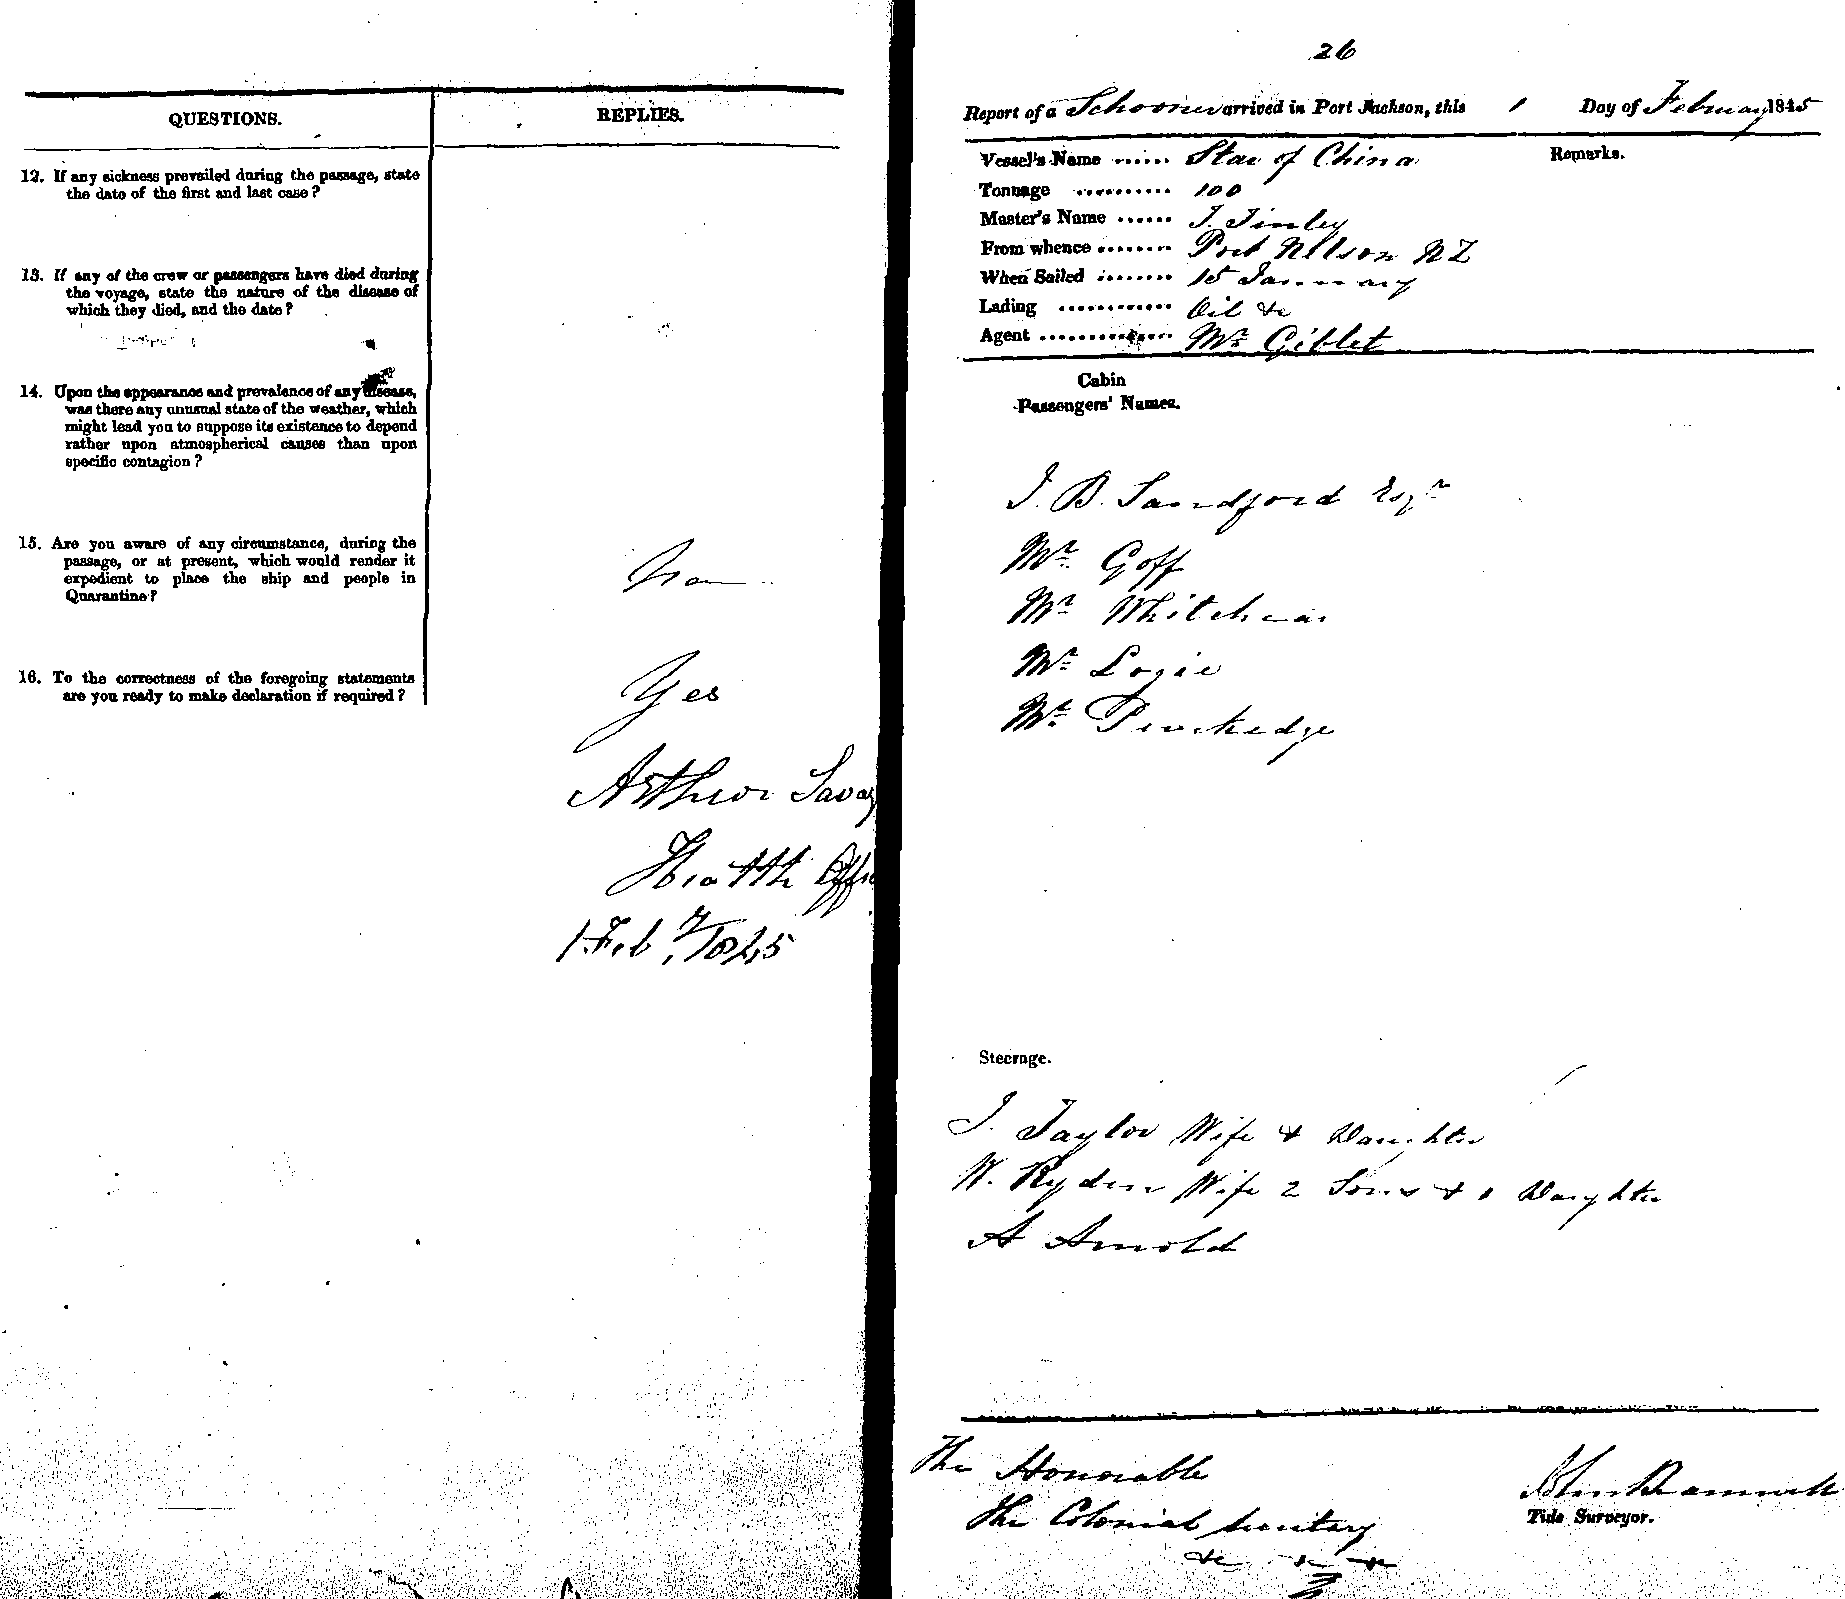 QUESTIONS.
REPLIES.
12. If any sickness prevailed during the passage, state
the date of the first and last case?
13. If any of the crew or passengers have died during
the voyage, state the nature of the disease of
which they died, and the date?
14. Upon the appearance and prevalence of any disease,
was there any unusual state of the weather, which
might lead you to suppose its existence to depend
rather upon atmospherical causes than upon
specific contagion?
15. Are you aware of any circumstance, during the
passage, or at present, which would render it
expedient to place the ship and people in
Quarantine?
16. To the correctness of the foregoing statements
are you ready to make declaration if required?
Yes
Arthur Savag
Health Offic
1 Feby/1845
26
Report of a Schooner arrived in Port Jackson, this 1 Day of February 1845
Vessel's Name ...... Star of China
Remarks.
Tonnage .......... 100
Master's Name ...... J. Tinley
From whence ........ Port Nelson NZ
When Sailed ........ 15 January
Lading ............ Oil &c
Agent .............. Mr Giblet
Cabin
Passengers' Names.
J. B. Sandford Esqr
Mr Goff
Mr
Mr Logie
Mr
Steerage.
J. Taylor Wife & Daughter
W. Ryden Wife 2 Sons & 1 Daughter
A Arnold
The Honorable
The Colonial Secretary
&c &c &c
John Bramwell
Tide Surveyor.